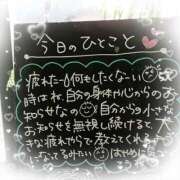 今日のひとこと
疲れた～何もしたくない
時はね、自分の身体か心からの
お知らせなの 自分からの小さな
お知らせを無視し続けると
きな疲れやらで 教えてくれるこ
になってるみたい はやめに